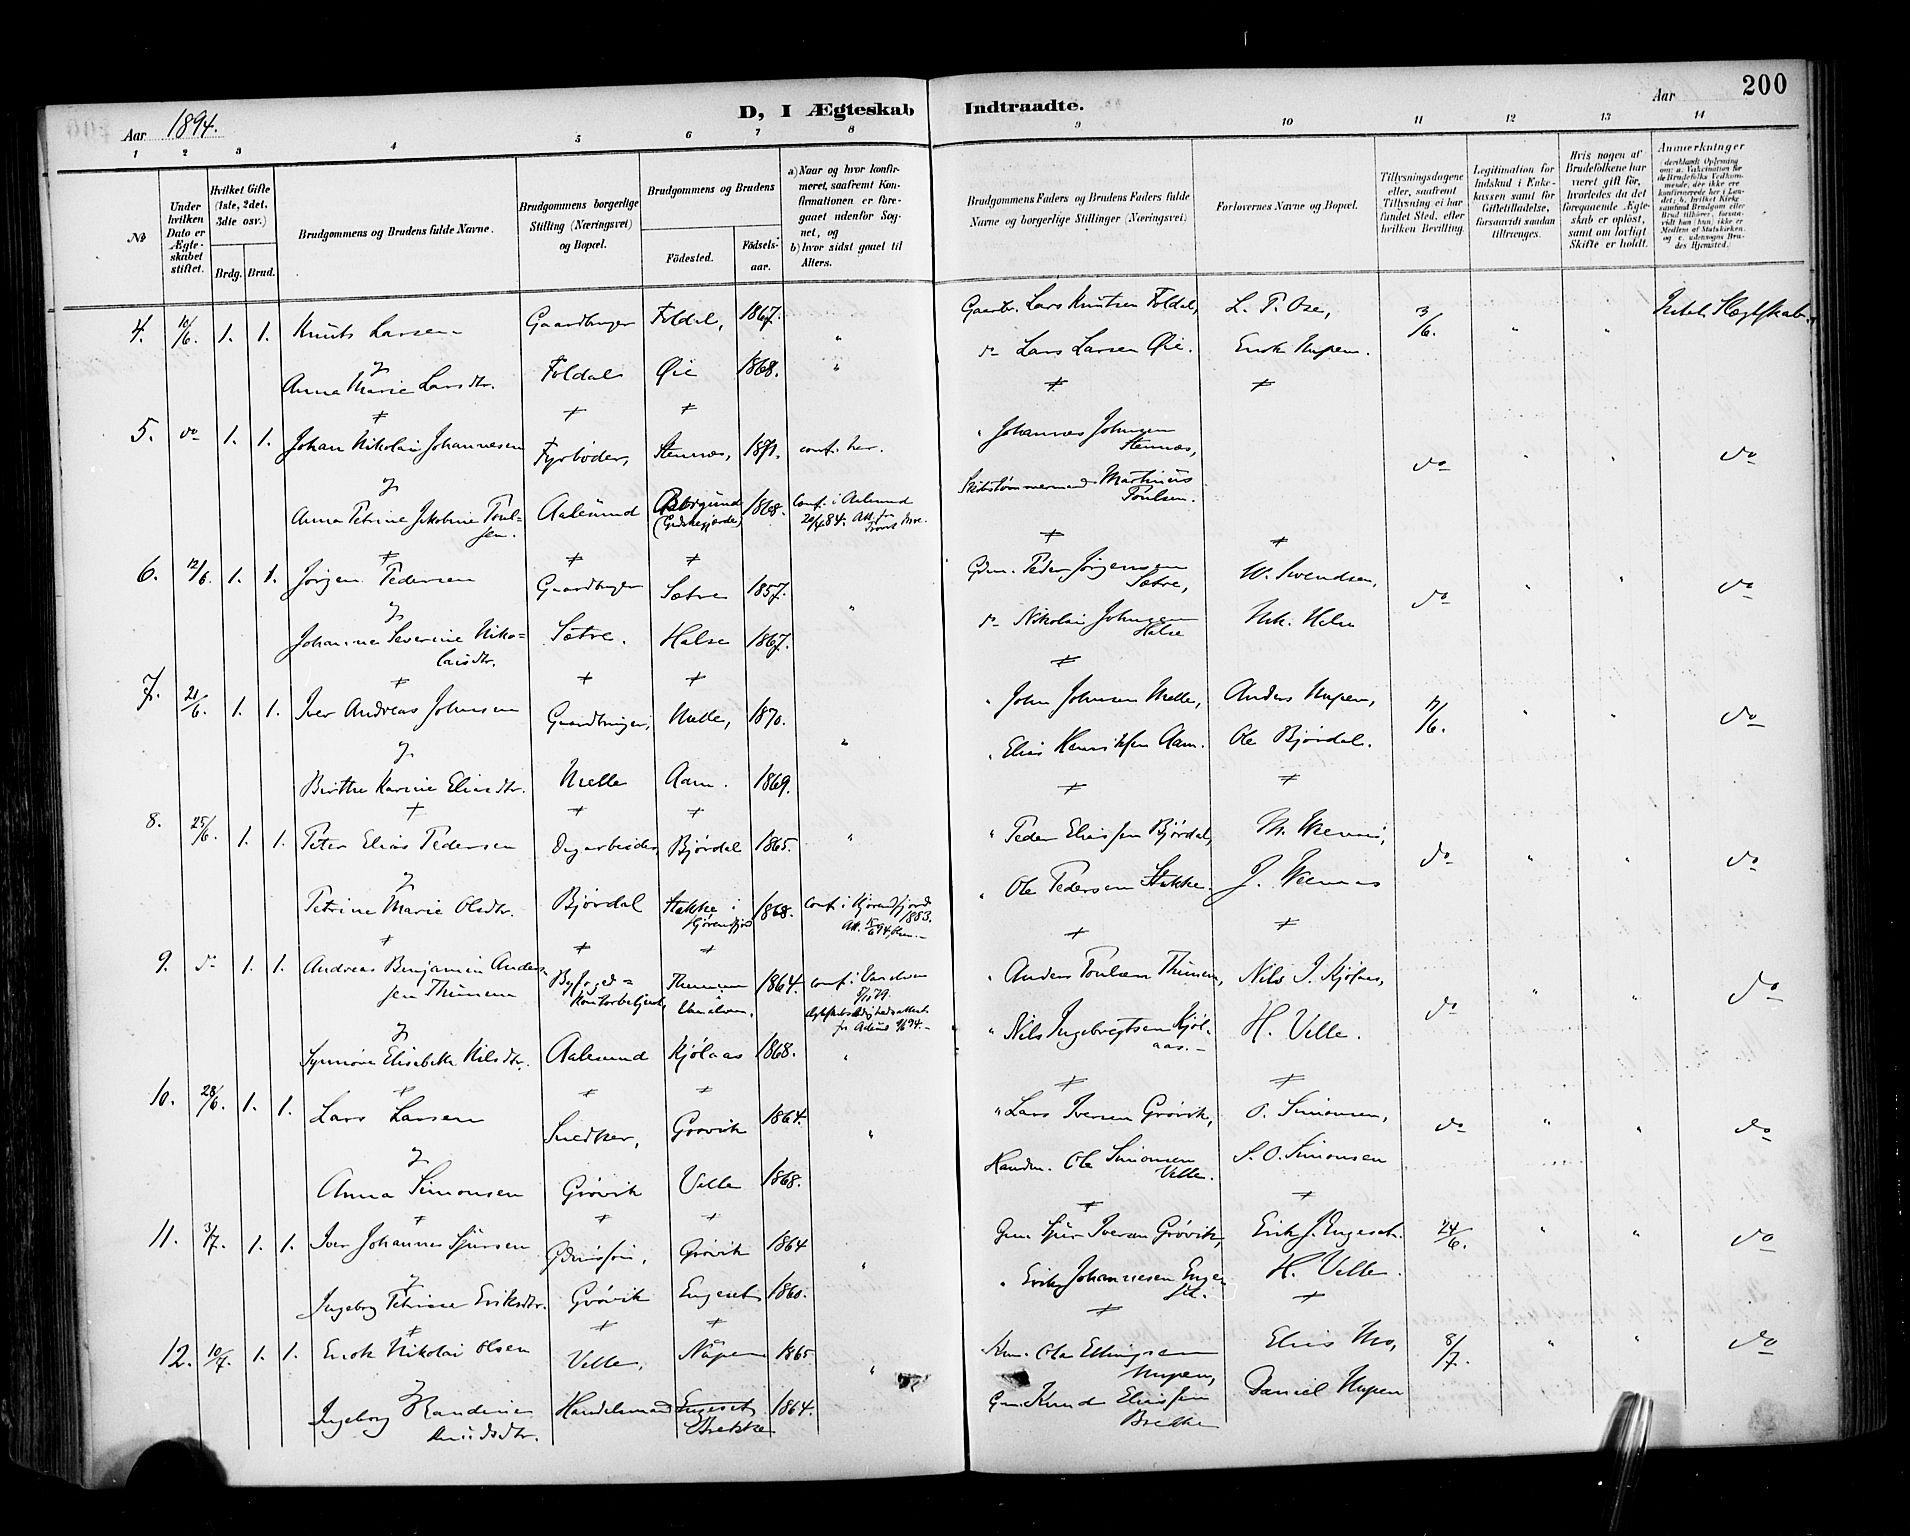 200
D, I Ægteskab Indtraadte.
Aar 1894.
Aar
1 2 3 4 5 6 7 8 9 10 11 12 13 14
№
Under hvilken Dato er Ægteskabet stiftet.
Hvilket Gifte (1ste, 2det, 3die osv.)
Brdg. Brud.
Brudgommens og Brudens fulde Navne.
Brudgommens borgerlige Stilling (Næringsvei) og Bopæl.
Brudgommens og Brudens
Födested.
Födselsaar.
a) Naar og hvor konfirmeret, saafremt Konfirmationen er foregaaet udenfor Sognet, og
b) hvor sidst gaaet til Alters.
Brudgommens Faders og Brudens Faders fulde Navne og borgerlige Stillinger (Næringsvei)
Forlovernes Navne og Bopæl.
Tillysningsdagene eller, saafremt Tillysning ei har fundet Sted, efter hvilken Bevilling.
Legitimation for Indskud i Enkekassen samt for Giftetilladelse, forsaavidt saadan tiltrænges.
Hvis nogen af Brudefolkene har været gift för, hvorledes da det foregaaende Ægteskab er oplöst, samt om lovligt Skifte er holdt.
Anmerkninger
4. 10/6. 1. 1. Knut Larsen Gaardbruger Foldal, 1867. " Gaardb. Lars Knutsen Foldal, L. P. Ose, 3/6. " "
&
Anna Marie Larsdtr. Foldal Øie 1868. " do Lars Larsen Øie. Enok Nupen.
5. do 1. 1. Johan Nikolai Johannesen Fyrbøder, Stennæs, 1871. conf. her. " Johannes Johnsen Stennæs, do " " do
&
Anna Petrine Jakobine Poulsen. Aalesund Borgund 1868. conf. i Aalesund Skibstømmermand Martinus Poulsen.
6. 12/6. 1. 1. Jørgen Pedersen Gaardbruger Sætre 1857. " Gdm. Peder Jørgensen Sætre, W. Svendsen, do " " do
&
Johanne Severine Nikolaisdtr. Sætre. Halse 1867. do Nikolai Johnsen Halse
7. 21/6. 1. 1. Iver Andreas Johnsen Gaardbruger, Melle, 1870. " " John Johnsen Melle, Anders Nupen, 17/6. " " do
&
Birthe Karine Eliasdtr. Melle Aam. 1869. " Elias Henriksen Aam. Ole Bjørdal.
8. 25/6. 1. 1. Peter Elias Pedersen Dagarbeider, Bjørdal 1865. " " Peder Eliassen Bjørdal, do " " do
&
Petrine Marie Olsdtr. Bjørdal Stakke i Hjørendfjord 1868. conf. i Hjørendfjord 1883. " Ole Pedersen Stakke.
9. do 1. 1. Andreas Benjamin Andersen Thunem Byfoged=Kontorbetjent, Thunem Vanelven. 1864. conf. i Vanelven " Anders Poulsen Thunem, Nils J. Kjølaas, do " " do
&
Synnøve Elisabeth Nilsdtr. Aalesund Kjølaas 1868. " " Nils Ingebregtsen Kjølaas. H. Velle.
10. 28/6. 1. 1. Lars Larsen Snedker, Grøvik 1864. " " Lars Iversen Grøvik, O. Simonsen, do " " do
&
Anna Simonsen Grøvik Velle 1868. Handm. Ole Simonsen Velle. S. O. Simonsen
11. 3/7. 1. 1. Iver Johannes Sjursen Gdmssøn, Grøvik 1864 " Gm. Sjur Iversen Grøvik, Erik J. Engeset. 24/6. " " do
&
Ingeborg Petrine Eriksdtr. Grøvik Engeset 1860. " Erik Johannesen Engeset. H. Velle.
12. 10/7. 1. 1. Enok Nikolai Olsen Velle, Nupen 1865 " Ole Ellingsen Nupen, Elias Mo, 8/7. " " do
&
Ingeborg Randine Knudsdtr. Handelsmand Engeset Brekke 1864. Gm. Knud Eliassen Brekke Daniel Nupen